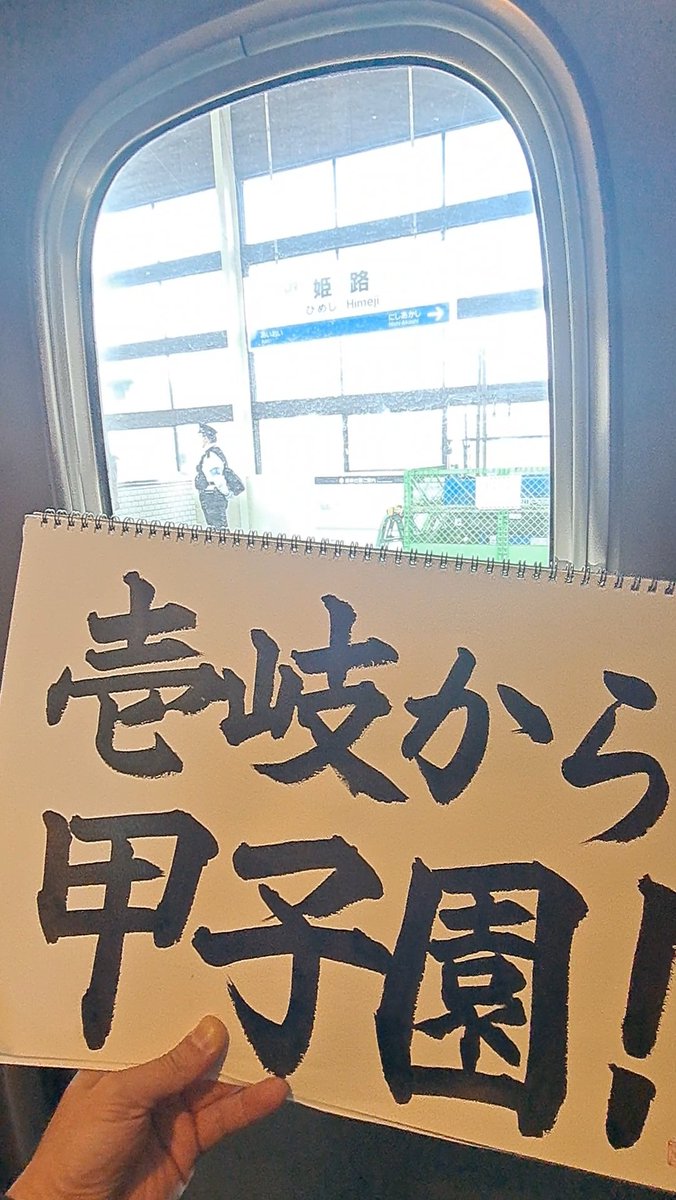 姫路
ひめじ Himeji
あいおい
にしあかし
Nishi-Akashi
壱岐から
甲子園!